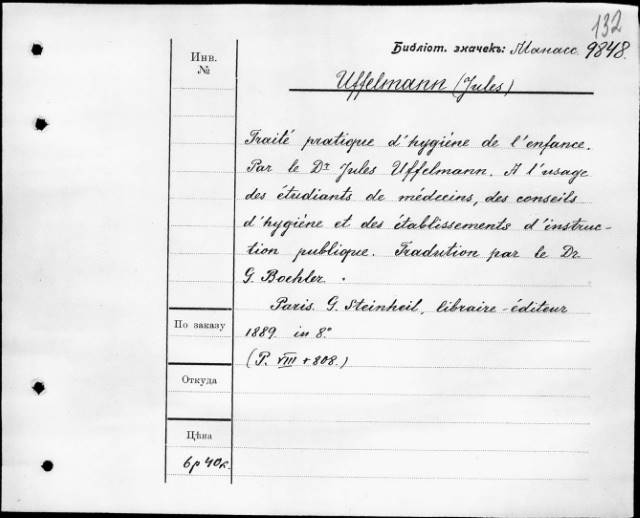 132
Библіот. значекъ: Манасс. 9848.
Инв.
№
Uffelmann (Jules)
Traité pratique d'hygiéne de l'enfance.
Par le Dr Jules Uffelmann. A l'usage
des étudiants de médecins, des conseils
d'hygiéne et des établissements d'instruc-
tion publique. Tradution par le Dr
G. Boehler.
Paris. G. Steinheil, libraire-éditeur
По заказу
1889. in 8º
(P. VIII + 808.)
Откуда
Цѣна
6р 40к.